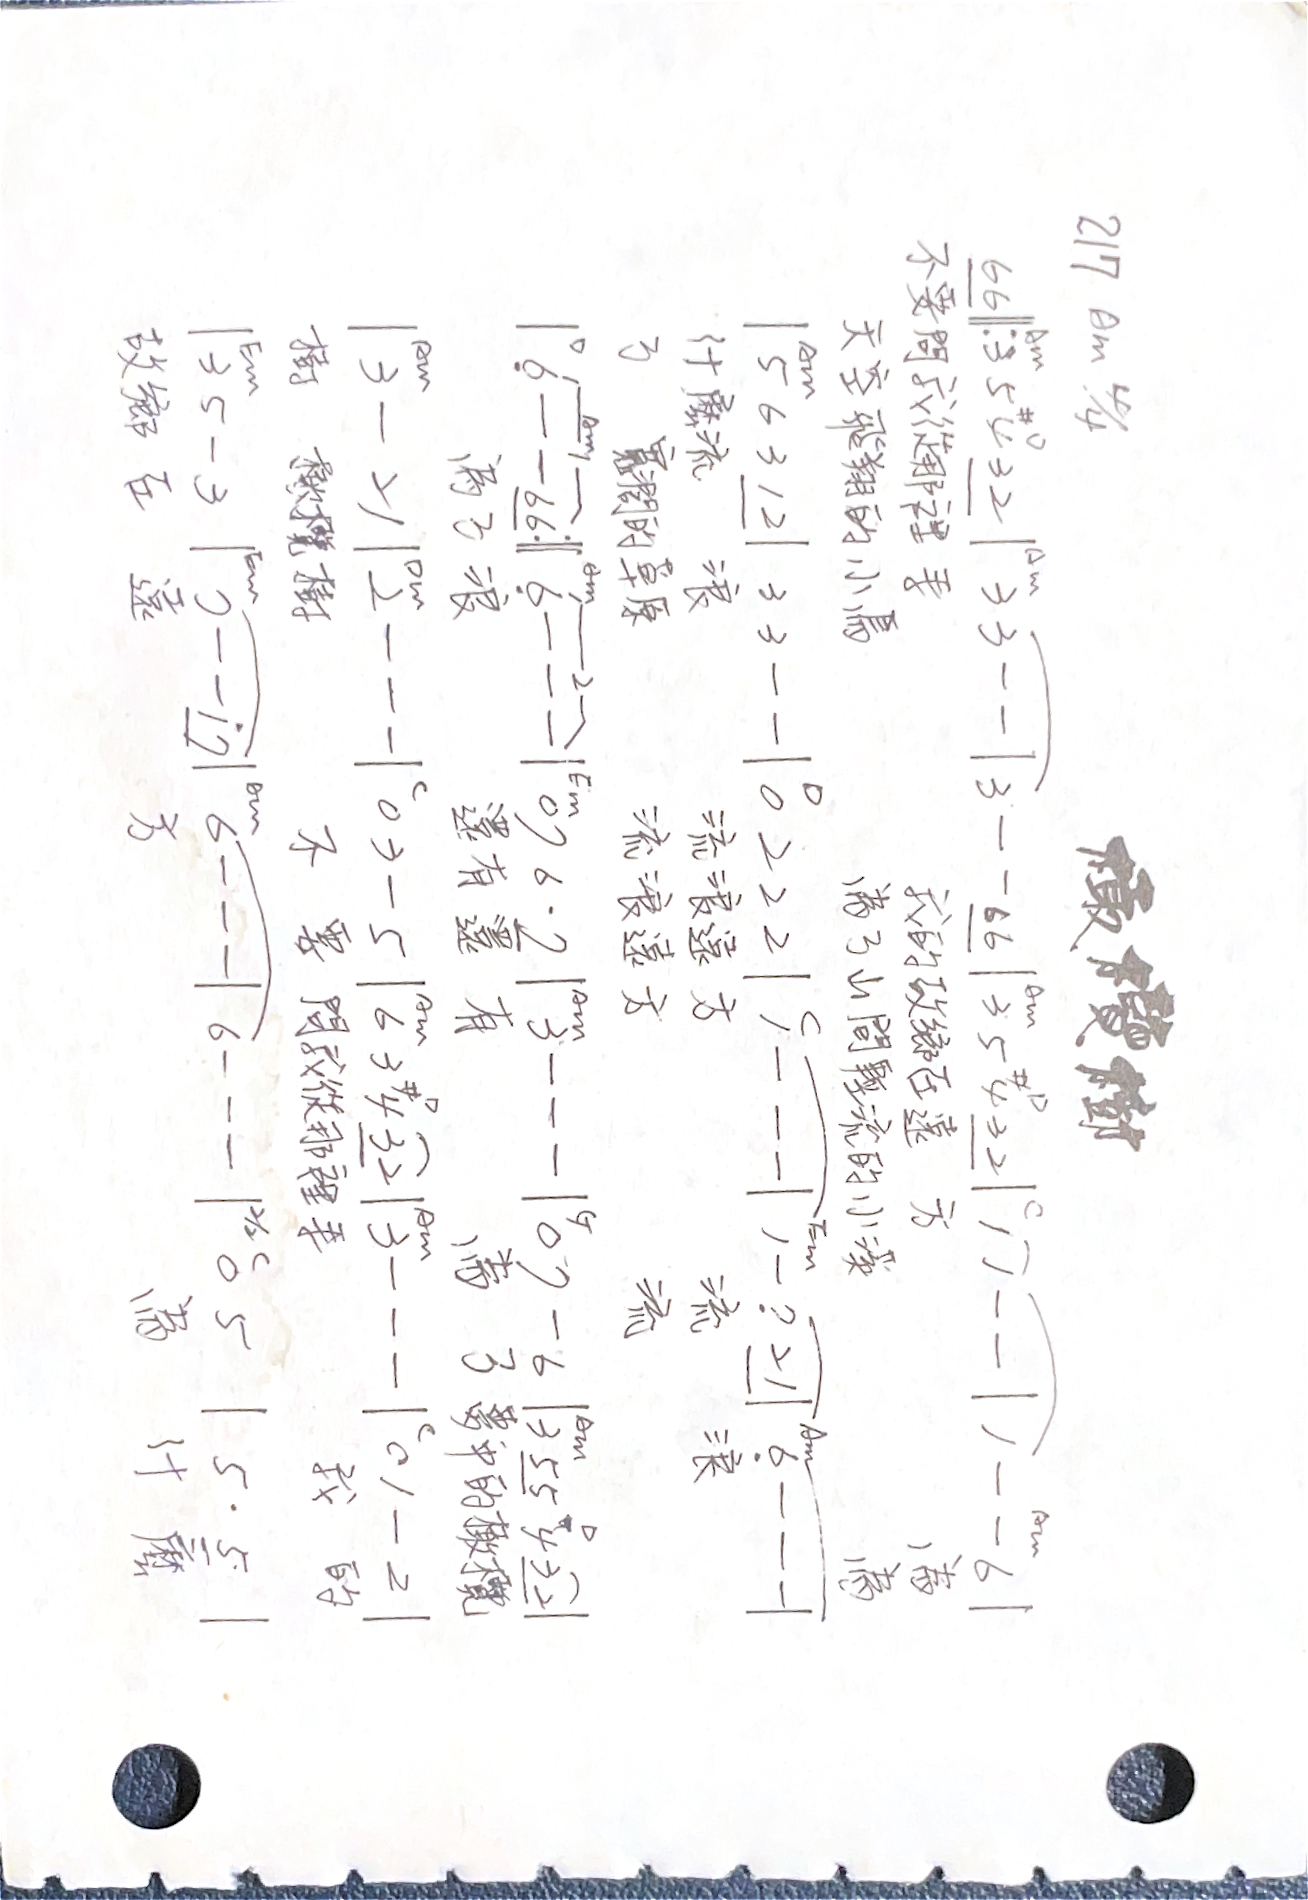 橄欖樹
217 Am 4/4
Am #D Am Am #D C Am
66‖:35432|33--|3--66|35432|11--|1--6|
不要問我從那裡來 我的故鄉在遠方 為
天空飛翔的小鳥 為了山間輕流的小溪 為
Am D C Em Am
|56312|33--|0222|1---|1-721|6---|
什麼流浪 流浪遠方 流浪
了 寬濶的草原 流浪遠方 流
D Am 1 Am 2 Em Am G Am #D
|6--66:‖6---|076·7|3---|07-6|355432|
為了浪 還有還有 為了夢中的橄欖
Am Dm C Am #D Am C
|3-21|2---|03-5|63432|3---|01-2|
樹 橄欖樹 不要問我從那裡來 我的
Em Em Am 2/2 C
|35-3|7--17|6---|6---|05|5·5|
故鄉在遠方 為什麼